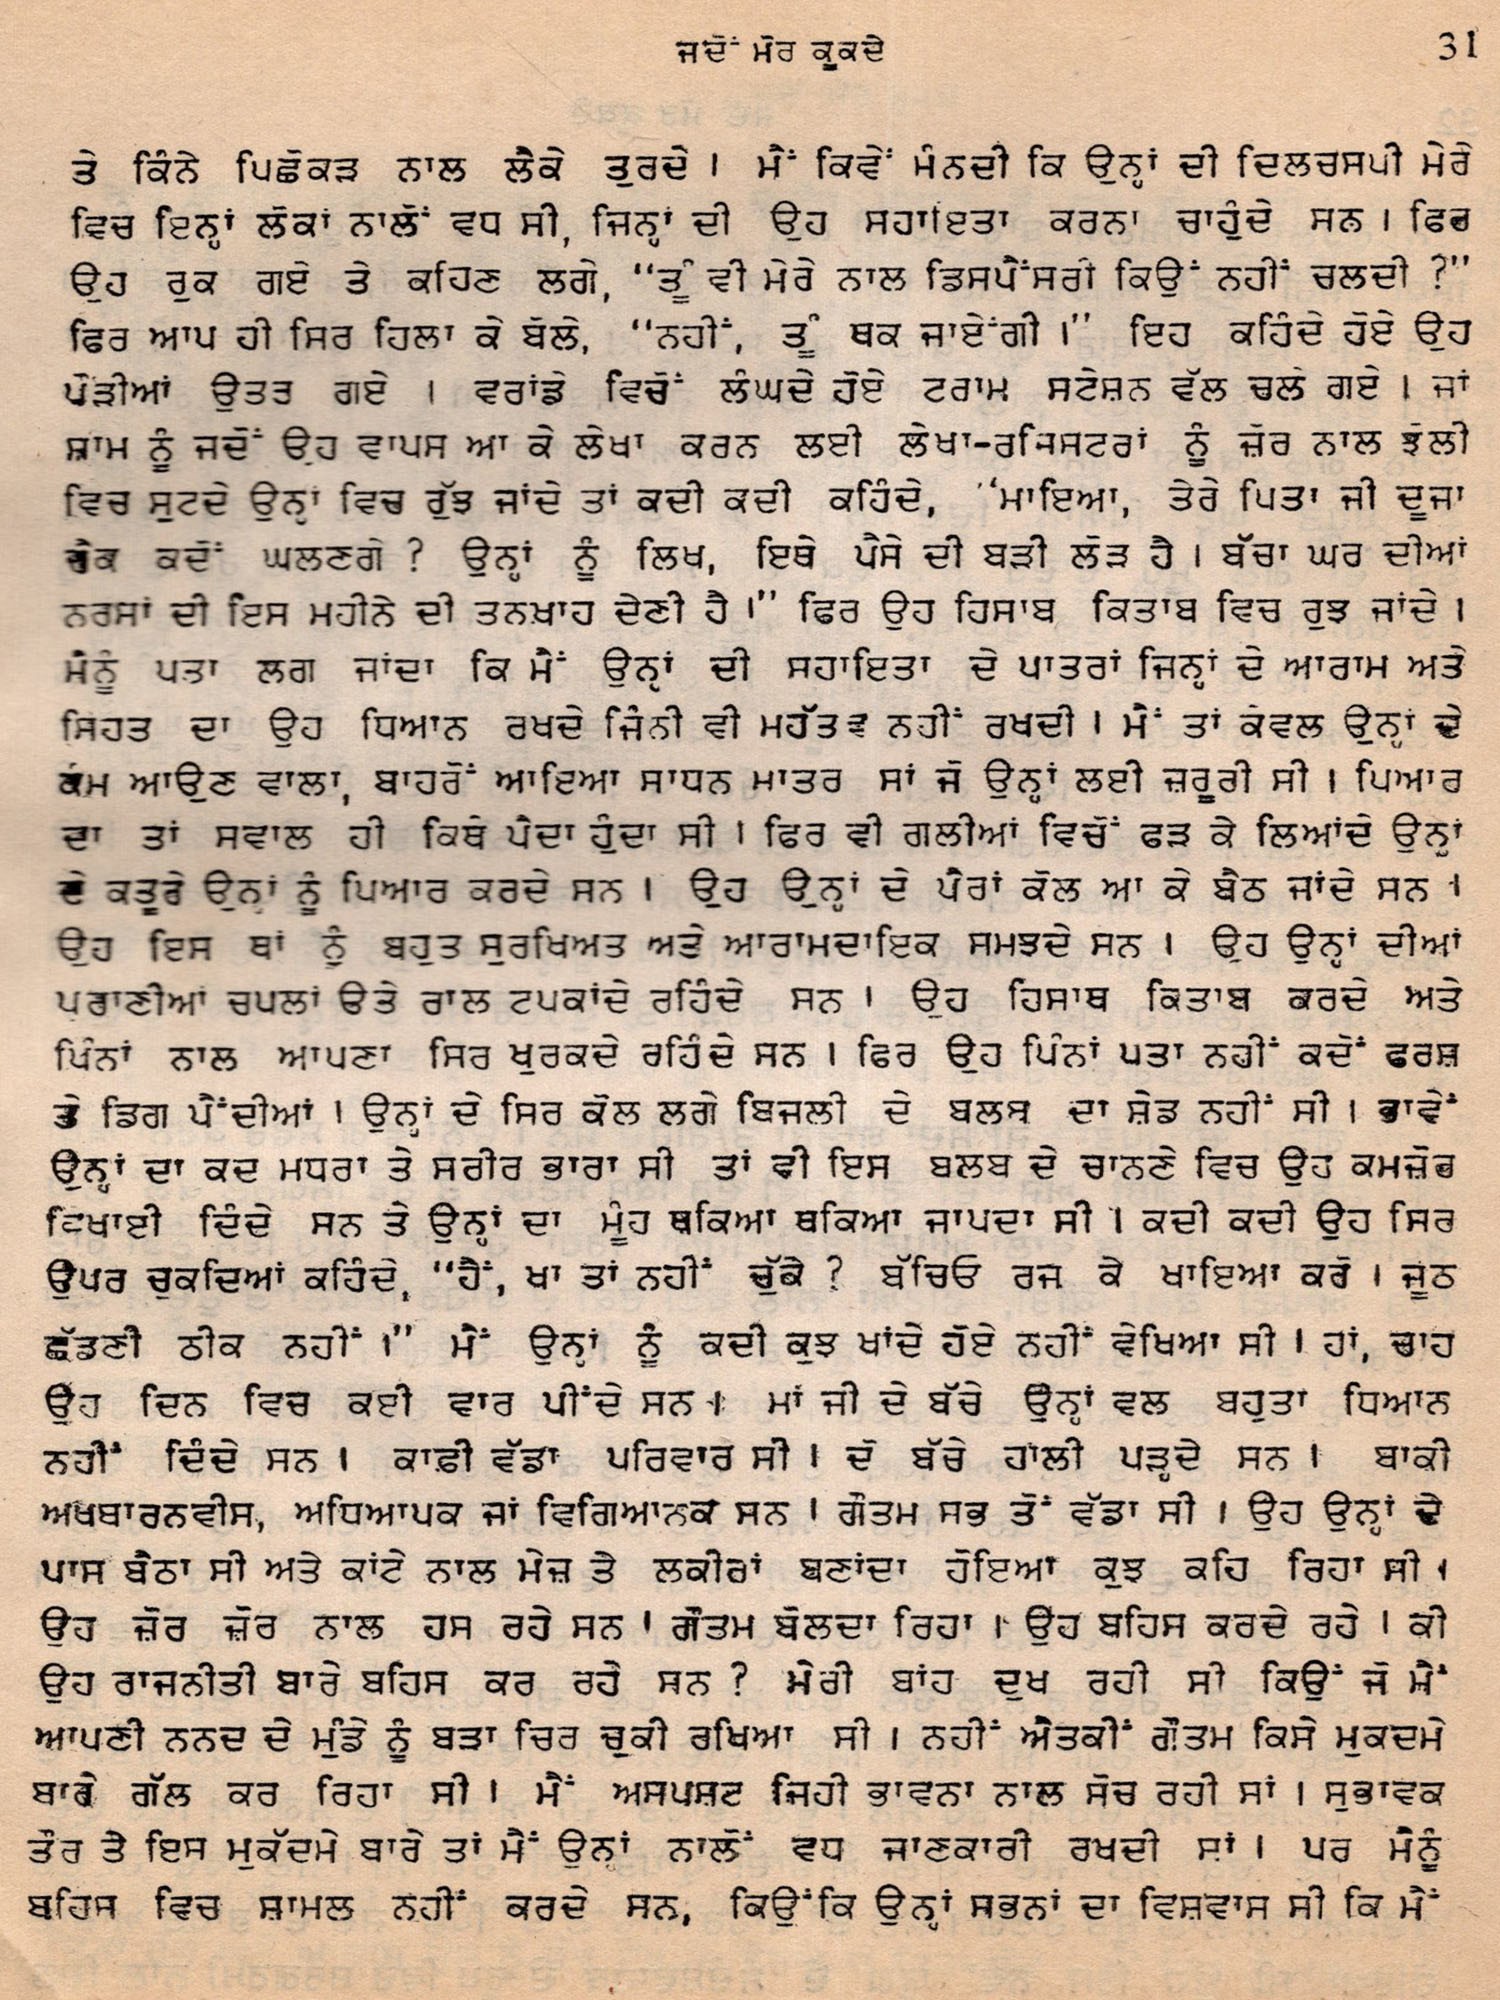 ਜਦੋਂ ਮੋਰ ਕੂਕਦੇ
31
ਤੇ ਕਿੰਨੇ ਪਿਛੋਕੜ ਨਾਲ ਲੈਕੇ ਤੁਰਦੇ । ਮੈਂ ਕਿਵੇਂ ਮੰਨਦੀ ਕਿ ਉਨ੍ਹਾਂ ਦੀ ਦਿਲਚਸਪੀ ਮੇਰੇ
ਵਿਚ ਇਨ੍ਹਾਂ ਲੋਕਾਂ ਨਾਲੋਂ ਵਧ ਸੀ, ਜਿਨ੍ਹਾਂ ਦੀ ਉਹ ਸਹਾਇਤਾ ਕਰਨਾ ਚਾਹੁੰਦੇ ਸਨ । ਫਿਰ
ਉਹ ਰੁਕ ਗਏ ਤੇ ਕਹਿਣ ਲਗੇ, “ਤੂੰ ਵੀ ਮੇਰੇ ਨਾਲ ਡਿਸਪੈਂਸਰੀ ਕਿਉਂ ਨਹੀਂ ਚਲਦੀ ?”
ਫਿਰ ਆਪ ਹੀ ਸਿਰ ਹਿਲਾ ਕੇ ਬੋਲੇ, “ਨਹੀਂ, ਤੂੰ ਥਕ ਜਾਏਂਗੀ ।” ਇਹ ਕਹਿੰਦੇ ਹੋਏ ਉਹ
ਪੌੜੀਆਂ ਉਤਰ ਗਏ । ਵਰਾਂਡੇ ਵਿਚੋਂ ਲੰਘਦੇ ਹੋਏ ਟਰਾਮ ਸਟੇਸ਼ਨ ਵੱਲ ਚਲੇ ਗਏ । ਜਾਂ
ਸ਼ਾਮ ਨੂੰ ਜਦੋਂ ਉਹ ਵਾਪਸ ਆ ਕੇ ਲੇਖਾ ਕਰਨ ਲਈ ਲੇਖਾ-ਰਜਿਸਟਰਾਂ ਨੂੰ ਜ਼ੋਰ ਨਾਲ ਝੋਲੀ
ਵਿਚ ਸੁਟਦੇ ਉਨ੍ਹਾਂ ਵਿਚ ਰੁੱਝ ਜਾਂਦੇ ਤਾਂ ਕਦੀ ਕਦੀ ਕਹਿੰਦੇ, “ਮਾਇਆ, ਤੇਰੇ ਪਿਤਾ ਜੀ ਦੂਜਾ
ਚੈਕ ਕਦੋਂ ਘਲਣਗੇ ? ਉਨ੍ਹਾਂ ਨੂੰ ਲਿਖ, ਇਥੇ ਪੈਸੇ ਦੀ ਬੜੀ ਲੋੜ ਹੈ । ਬੱਚਾ ਘਰ ਦੀਆਂ
ਨਰਸਾਂ ਦੀ ਇਸ ਮਹੀਨੇ ਦੀ ਤਨਖ਼ਾਹ ਦੇਣੀ ਹੈ ।” ਫਿਰ ਉਹ ਹਿਸਾਬ ਕਿਤਾਬ ਵਿਚ ਰੁਝ ਜਾਂਦੇ ।
ਮੈਨੂੰ ਪਤਾ ਲਗ ਜਾਂਦਾ ਕਿ ਮੈਂ ਉਨ੍ਹਾਂ ਦੀ ਸਹਾਇਤਾ ਦੇ ਪਾਤਰਾਂ ਜਿਨ੍ਹਾਂ ਦੇ ਆਰਾਮ ਅਤੇ
ਸਿਹਤ ਦਾ ਉਹ ਧਿਆਨ ਰਖਦੇ ਜਿੰਨੀ ਵੀ ਮਹੱਤਵ ਨਹੀਂ ਰਖਦੀ । ਮੈਂ ਤਾਂ ਕੇਵਲ ਉਨ੍ਹਾਂ ਦੇ
ਕੰਮ ਆਉਣ ਵਾਲਾ, ਬਾਹਰੋਂ ਆਇਆ ਸਾਧਨ ਮਾਤਰ ਸਾਂ ਜੋ ਉਨ੍ਹਾਂ ਲਈ ਜ਼ਰੂਰੀ ਸੀ । ਪਿਆਰ
ਦਾ ਤਾਂ ਸਵਾਲ ਹੀ ਕਿਥੇ ਪੈਦਾ ਹੁੰਦਾ ਸੀ । ਫਿਰ ਵੀ ਗਲੀਆਂ ਵਿਚੋਂ ਫੜ ਕੇ ਲਿਆਂਦੇ ਉਨ੍ਹਾਂ
ਦੇ ਕਤੂਰੇ ਉਨ੍ਹਾਂ ਨੂੰ ਪਿਆਰ ਕਰਦੇ ਸਨ । ਉਹ ਉਨ੍ਹਾਂ ਦੇ ਪੈਰਾਂ ਕੋਲ ਆ ਕੇ ਬੈਠ ਜਾਂਦੇ ਸਨ ।
ਉਹ ਇਸ ਥਾਂ ਨੂੰ ਬਹੁਤ ਸੁਰਖਿਅਤ ਅਤੇ ਆਰਾਮਦਾਇਕ ਸਮਝਦੇ ਸਨ । ਉਹ ਉਨ੍ਹਾਂ ਦੀਆਂ
ਪੁਰਾਣੀਆਂ ਚਪਲਾਂ ਉਤੇ ਰਾਲ ਟਪਕਾਂਦੇ ਰਹਿੰਦੇ ਸਨ । ਉਹ ਹਿਸਾਬ ਕਿਤਾਬ ਕਰਦੇ ਅਤੇ
ਪਿੰਨਾਂ ਨਾਲ ਆਪਣਾ ਸਿਰ ਖੁਰਕਦੇ ਰਹਿੰਦੇ ਸਨ । ਫਿਰ ਉਹ ਪਿੰਨਾਂ ਪਤਾ ਨਹੀਂ ਕਦੋਂ ਫਰਸ਼
ਤੇ ਡਿਗ ਪੈਂਦੀਆਂ । ਉਨ੍ਹਾਂ ਦੇ ਸਿਰ ਕੋਲ ਲਗੇ ਬਿਜਲੀ ਦੇ ਬਲਬ ਦਾ ਸ਼ੇਡ ਨਹੀਂ ਸੀ । ਭਾਵੇਂ
ਉਨ੍ਹਾਂ ਦਾ ਕਦ ਮਧਰਾ ਤੇ ਸਰੀਰ ਭਾਰਾ ਸੀ ਤਾਂ ਵੀ ਇਸ ਬਲਬ ਦੇ ਚਾਨਣੇ ਵਿਚ ਉਹ ਕਮਜ਼ੋਰ
ਦਿਖਾਈ ਦਿੰਦੇ ਸਨ ਤੇ ਉਨ੍ਹਾਂ ਦਾ ਮੂੰਹ ਥਕਿਆ ਥਕਿਆ ਜਾਪਦਾ ਸੀ । ਕਦੀ ਕਦੀ ਉਹ ਸਿਰ
ਉਪਰ ਚੁਕਦਿਆਂ ਕਹਿੰਦੇ, “ਹੈਂ, ਖਾ ਤਾਂ ਨਹੀਂ ਚੁੱਕੇ ? ਬੱਚਿਓ ਰਜ ਕੇ ਖਾਇਆ ਕਰੋ । ਜੂਠ
ਛੱਡਣੀ ਠੀਕ ਨਹੀਂ ।” ਮੈਂ ਉਨ੍ਹਾਂ ਨੂੰ ਕਦੀ ਕੁਝ ਖਾਂਦੇ ਹੋਏ ਨਹੀਂ ਵੇਖਿਆ ਸੀ । ਹਾਂ, ਚਾਹ
ਉਹ ਦਿਨ ਵਿਚ ਕਈ ਵਾਰ ਪੀਂਦੇ ਸਨ । ਮਾਂ ਜੀ ਦੇ ਬੱਚੇ ਉਨ੍ਹਾਂ ਵਲ ਬਹੁਤਾ ਧਿਆਨ
ਨਹੀਂ ਦਿੰਦੇ ਸਨ । ਕਾਫ਼ੀ ਵੱਡਾ ਪਰਿਵਾਰ ਸੀ । ਦੋ ਬੱਚੇ ਹਾਲੀ ਪੜ੍ਹਦੇ ਸਨ । ਬਾਕੀ
ਅਖਬਾਰਨਵੀਸ, ਅਧਿਆਪਕ ਜਾਂ ਵਿਗਿਆਨਕ ਸਨ । ਗੌਤਮ ਸਭ ਤੋਂ ਵੱਡਾ ਸੀ । ਉਹ ਉਨ੍ਹਾਂ ਦੇ
ਪਾਸ ਬੈਠਾ ਸੀ ਅਤੇ ਕਾਂਟੇ ਨਾਲ ਮੇਜ਼ ਤੇ ਲਕੀਰਾਂ ਬਣਾਂਦਾ ਹੋਇਆ ਕੁਝ ਕਹਿ ਰਿਹਾ ਸੀ ।
ਉਹ ਜ਼ੋਰ ਜ਼ੋਰ ਨਾਲ ਹਸ ਰਹੇ ਸਨ । ਗੌਤਮ ਬੋਲਦਾ ਰਿਹਾ । ਉਹ ਬਹਿਸ ਕਰਦੇ ਰਹੇ । ਕੀ
ਉਹ ਰਾਜਨੀਤੀ ਬਾਰੇ ਬਹਿਸ ਕਰ ਰਹੇ ਸਨ ? ਮੇਰੀ ਬਾਂਹ ਦੁਖ ਰਹੀ ਸੀ ਕਿਉਂ ਜੋ ਮੈਂ
ਆਪਣੀ ਨਨਦ ਦੇ ਮੁੰਡੇ ਨੂੰ ਬੜਾ ਚਿਰ ਚੁਕੀ ਰਖਿਆ ਸੀ । ਨਹੀਂ ਐਤਕੀਂ ਗੌਤਮ ਕਿਸੇ ਮੁਕਦਮੇ
ਬਾਰੇ ਗੱਲ ਕਰ ਰਿਹਾ ਸੀ । ਮੈਂ ਅਸਪਸ਼ਟ ਜਿਹੀ ਭਾਵਨਾ ਨਾਲ ਸੋਚ ਰਹੀ ਸਾਂ । ਸੁਭਾਵਕ
ਤੌਰ ਤੇ ਇਸ ਮੁਕੱਦਮੇ ਬਾਰੇ ਤਾਂ ਮੈਂ ਉਨਾਂ ਨਾਲੋਂ ਵਧ ਜਾਣਕਾਰੀ ਰਖਦੀ ਸਾਂ । ਪਰ ਮੈਨੂੰ
ਬਹਿਸ ਵਿਚ ਸ਼ਾਮਲ ਨਹੀਂ ਕਰਦੇ ਸਨ, ਕਿਉਂਕਿ ਉਨ੍ਹਾਂ ਸਭਨਾਂ ਦਾ ਵਿਸ਼ਵਾਸ ਸੀ ਕਿ ਮੈਂ